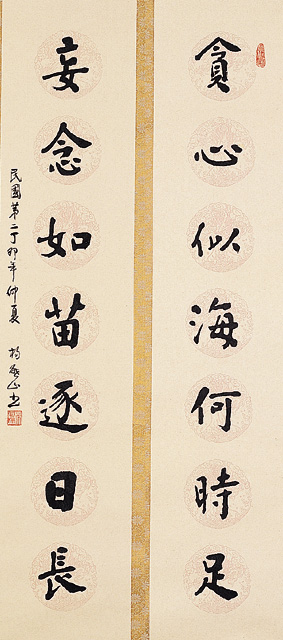 貪心似海何時足
妄念如苗逐日長
民國第二丁卯年仲夏